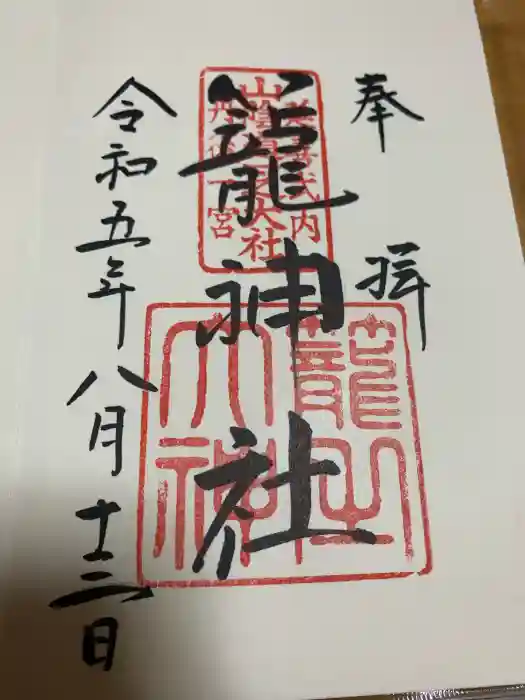 奉拝
延喜式内
山陰
之大社
丹後一宮
籠神社
籠之
大神
令和五年八月十三日